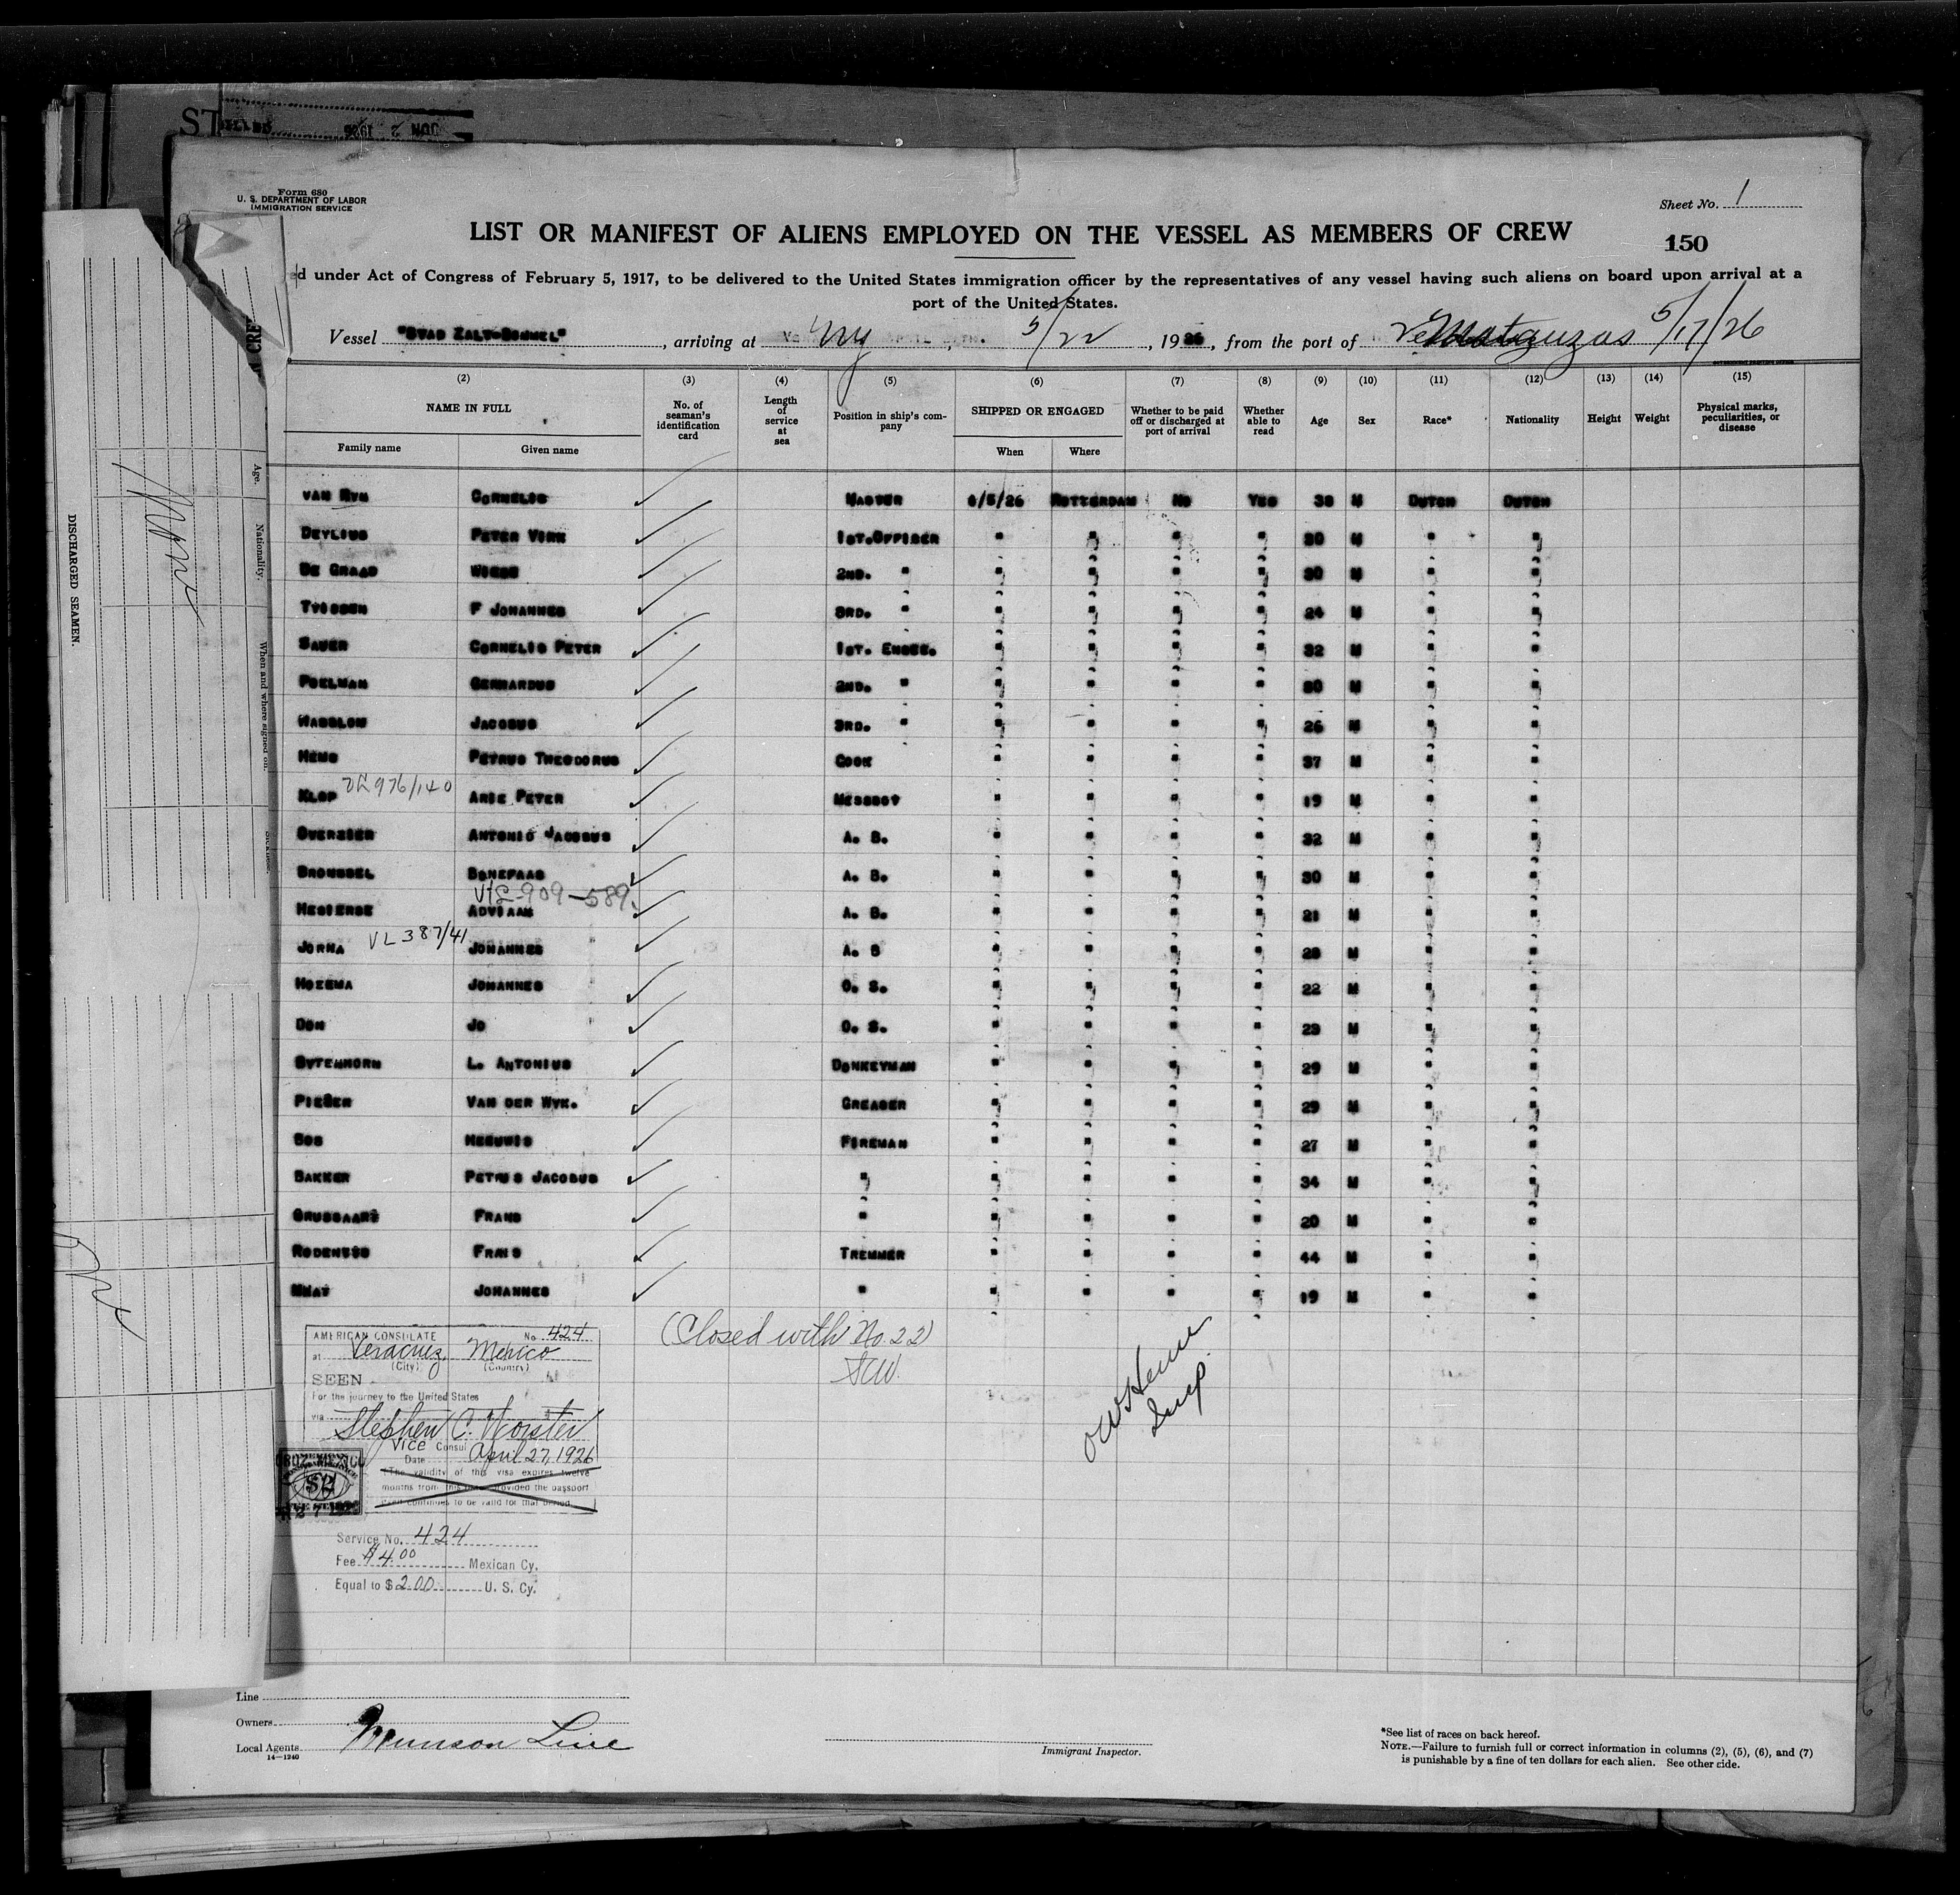 JUN 2 1926
Form 680
U. S. DEPARTMENT OF LABOR
IMMIGRATION SERVICE
Sheet No. 1
LIST OR MANIFEST OF ALIENS EMPLOYED ON THE VESSEL AS MEMBERS OF CREW
150
ed under Act of Congress of February 5, 1917, to be delivered to the United States immigration officer by the representatives of any vessel having such aliens on board upon arrival at a
port of the United States.
Vessel "STAD ZALT-BOMMEL", arriving at NY, 5/22, 1926, from the port of Matanzas 5/17/26
(2) (3) (4) (5) (6) (7) (8) (9) (10) (11) (12) (13) (14) (15)
NAME IN FULL No. of seaman's identification card Length of service at sea Position in ship's company SHIPPED OR ENGAGED Whether to be paid off or discharged at port of arrival Whether able to read Age Sex Race* Nationality Height Weight Physical marks, peculiarities, or disease
Family name Given name When Where
VAN RYN CORNELIS MASTER 6/5/26 ROTTERDAM NO YES 38 M DUTCH DUTCH
DEYLIUS PETER VINK 1ST.OFFICER " " " " 30 M " "
DE GRAAD 2ND. " " " " " 30 M " "
F JOHANNES 3RD. " " " " " 24 M " "
SAUER CORNELIS PETER 1ST. ENGEE. " " " " 32 M " "
POELMAN GERHARDUS 2ND. " " " " " 30 M " "
JACOBUS 3RD. " " " " " 26 M " "
HENS PETRUS THEODORUS COOK " " " " 37 M " "
KLOP VL976/140 ARIE PETER MESSBOY " " " " 19 M " "
OVERZIER ANTONIO JACOBUS A. B. " " " " 32 M " "
BROUSSEL BONEFAAS A. B. " " " " 30 M " "
VL-909-589
ADVIAAN A. B. " " " " 21 M " "
JORNA VL387/41 JOHANNES A. B " " " " 28 M " "
HOZEMA JOHANNES O. S. " " " " 22 M " "
DON JO O. S. " " " " 23 M " "
BYTENHORN L. ANTONIUS DONKEYMAN " " " " 29 M " "
PIEGER VAN DER WYK. GREASER " " " " 29 M " "
BOS MEEUWIS FIREMAN " " " " 27 M " "
BAKKER PETRUS JACOBUS " " " " " 34 M " "
FRANS " " " " " 20 M " "
FRANS TREMMER " " " " 44 M " "
JOHANNES " " " " " 19 M " "
AMERICAN CONSULATE No. 424
at Veracruz, Mexico
(City) (Country)
SEEN
For the journey to the United States
via
Stephen C. Worster
Vice Consul
Date April 27, 1926
The validity of this visa expires twelve
months from this date provided the passport
continues to be valid for that period
$2
Service No. 424
Fee $4.00 Mexican Cy.
Equal to $ 2.00 U. S. Cy.
(Closed with No. 22)
SCW.
Insp.
Line
Owners
Local Agents Munson Line
14—1240
Immigrant Inspector.
*See list of races on back hereof.
NOTE.—Failure to furnish full or correct information in columns (2), (5), (6), and (7)
is punishable by a fine of ten dollars for each alien. See other side.
DISCHARGED SEAMEN.
Age.
Nationality.
When and where signed on.